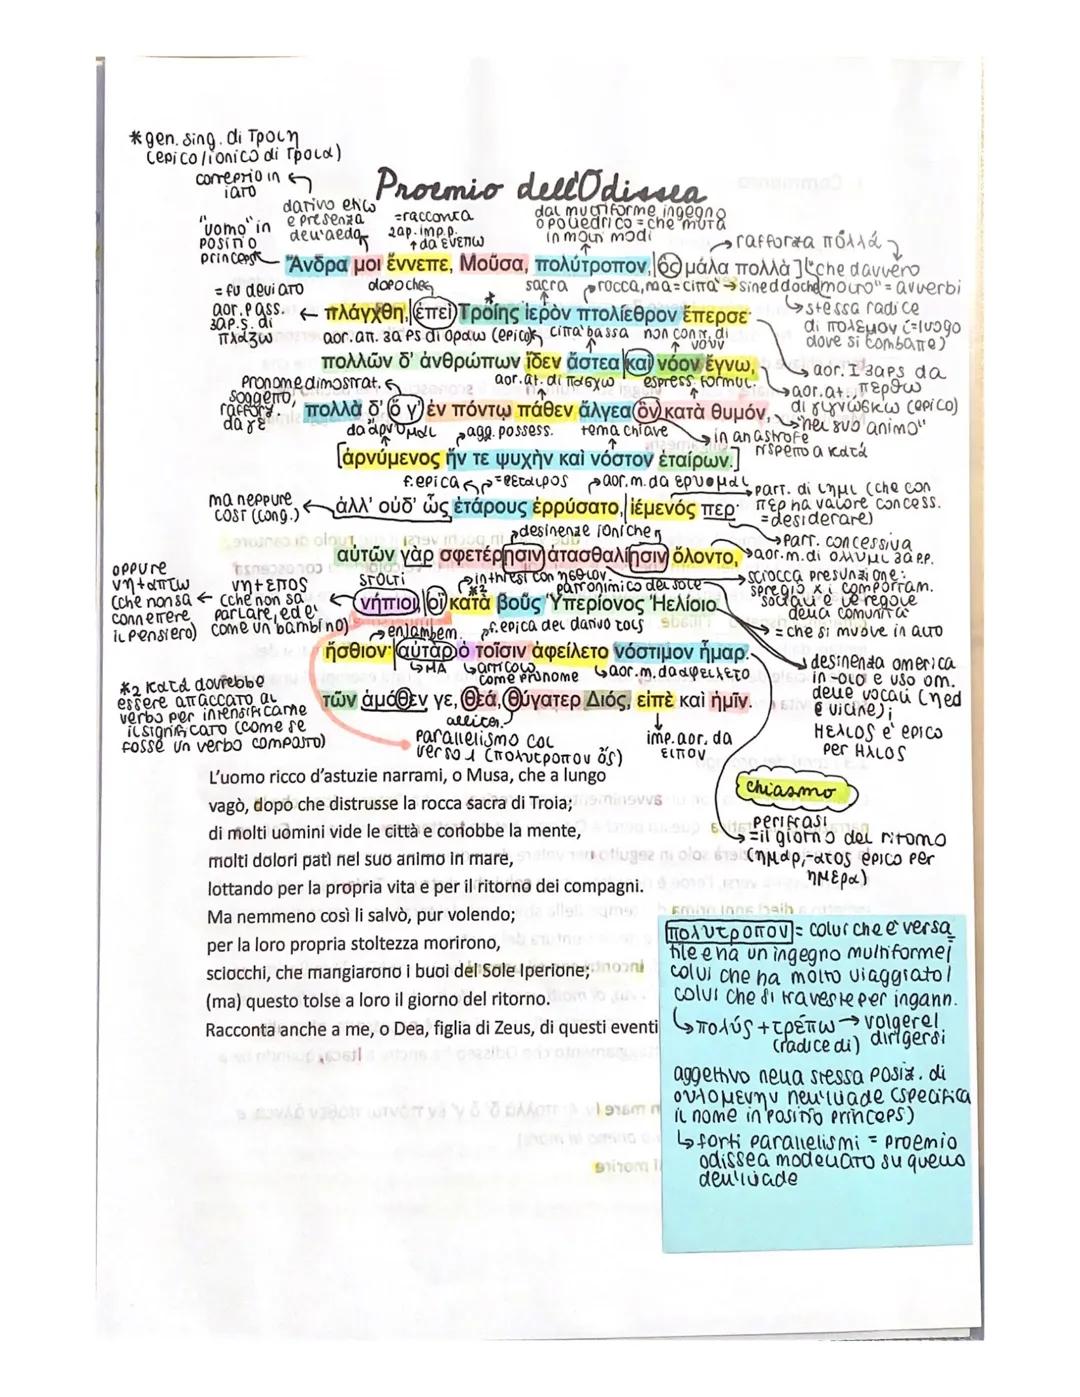 *gen. sing. di Τροιη
(epico/ionico di Τροια)
correptio in
iato
Proemio dell'Odissea
"uomo" in
positio
princeps
dativo etico
e presenza
dell'aedo
=racconta
2ap. imp. p.
da ενεπω
dal multiforme ingegno
o poliedrico = che muta
in molti modi
rafforza πολλά
Ἄνδρα μοι ἔννεπε, Μοῦσα, πολύτροπον, ὃς μάλα πολλὰ
"che davvero
molto" = avverbi
= fu deviato
aor. pass.
3ap.s. di
πλαζω
dopo che
sacra
rocca, ma = citta' → sineddoche
πλάγχθη, ἐπεὶ Τροίης ἱερὸν πτολίεθρον ἔπερσε·
stessa radice
di πολεμον (=luogo
dove si combatte)
aor. att. 3aps di οραω (epico)
citta' bassa
non contr. di
νουν
πολλῶν δ' ἀνθρώπων ἴδεν ἄστεα καὶ νόον ἔγνω,
aor. I 3aps da
περθω
aor. at.
di γιγνωσκω (epico)
Pronome dimostrat.
soggetto,
rafforz.
da γε
aor. at. di πασχω
espress. formul.
πολλὰ δ' ὅ γ' ἐν πόντῳ πάθεν ἄλγεα ὃν κατὰ θυμόν,
"nel suo animo"
da αρνυμαι
agg. possess.
tema chiave
in anastrofe
rispetto a κατά
[ἀρνύμενος ἥν τε ψυχὴν καὶ νόστον ἑταίρων.]
f. epica
=εταιρος
aor. m. da ερυομαι
ma neppure
così (cong.)
ἀλλ' οὐδ' ὧς ἑτάρους ἐρρύσατο, ἱέμενός περ·
part. di ιημι (che con
περ ha valore concess.
= desiderare)
part. concessiva
desinenze ioniche
αὐτῶν γὰρ σφετέρῃσιν ἀτασθαλίῃσιν ὄλοντο,
aor. m. di ολλυμι 3a p.p.
sciocca presunzione:
spregio x i comportam.
sociali e le regole
della comunità
oppure
νη+απτω
(che non sa
connettere
il pensiero)
νη+επος
(che non sa
parlare, ed e'
come un bambino)
stolti
in tmesi con ησθιον
patronimico del sole
*2
νήπιοι, οἳ κατὰ βοῦς Ὑπερίονος Ἠελίοιο
= che si muove in alto
enjambem.
f. epica del dativo τοις
ἤσθιον· αὐτὰρ ὁ τοῖσιν ἀφείλετο νόστιμον ἦμαρ.
MA
articolo
come pronome
aor. m. da αφειλετο
desinenza omerica
in -οιο e uso om.
delle vocali (η ed
ε vicine);
Ηελιος e' epico
per Ηλιος
*2 κατά dovrebbe
essere attaccato al
verbo per intensificarne
il significato (come se
fosse un verbo composto)
τῶν ἁμόθεν γε, θεά, θύγατερ Διός, εἰπὲ καὶ ἡμῖν.
alliter.
Parallelismo col
verso 1 (πολυτροπον ὅς)
imp. aor. da
ειπον
L'uomo ricco d'astuzie narrami, o Musa, che a lungo
vagò, dopo che distrusse la rocca sacra di Troia;
di molti uomini vide le città e conobbe la mente,
molti dolori patì nel suo animo in mare,
lottando per la propria vita e per il ritorno dei compagni.
Ma nemmeno così li salvò, pur volendo;
per la loro propria stoltezza morirono,
sciocchi, che mangiarono i buoi del Sole Iperione;
(ma) questo tolse a loro il giorno del ritorno.
Racconta anche a me, o Dea, figlia di Zeus, di questi eventi
chiasmo
perifrasi
=il giorno del ritorno
(ημαρ,-ατος epico per
ημερα)
πολυτροπον = colui che e' versa
tile e ha un ingegno multiforme/
colui che ha molto viaggiato/
colui che si traveste per ingann.
πολύς + τρέπω → volgere/
(radice di) dirigersi
aggettivo nella stessa posiz. di
ουλομενην nell'iliade (specifica
il nome in positio princeps)
forti parallelismi = proemio
odissea modellato su quello
dell'iliade